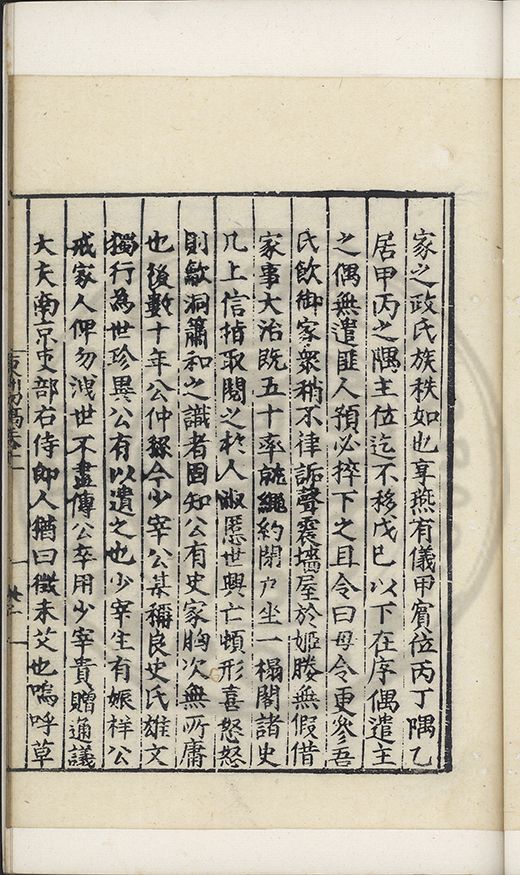 家之政氏族秩如也享燕有儀甲賓位丙丁隅乙
居甲丙之隅主位迄不移戊已以下在序偶遣主
之偶無遣匪人預必捽下之且令曰毋令更參吾
氏飲御家衆稍不律訴聲襄墻屋於姬媵無假借
家事大治既五十率就繩約閉户坐一榻閣諸史
几上信指取閱之於人淑慝世興亡頓形喜怒怒
則歙洞簫和之識者固知公有史家胸次無所庸
也後數十年公仲豫今少宰公甚稱良史氏雄文
獨行為世珍異公有以遺之也少宰生有娠祥公
戒家人俾勿洩世不盡傳公卒用少宰貴贈通議
大夫南京吏部右侍郎人猶曰徵未艾也嗚呼草